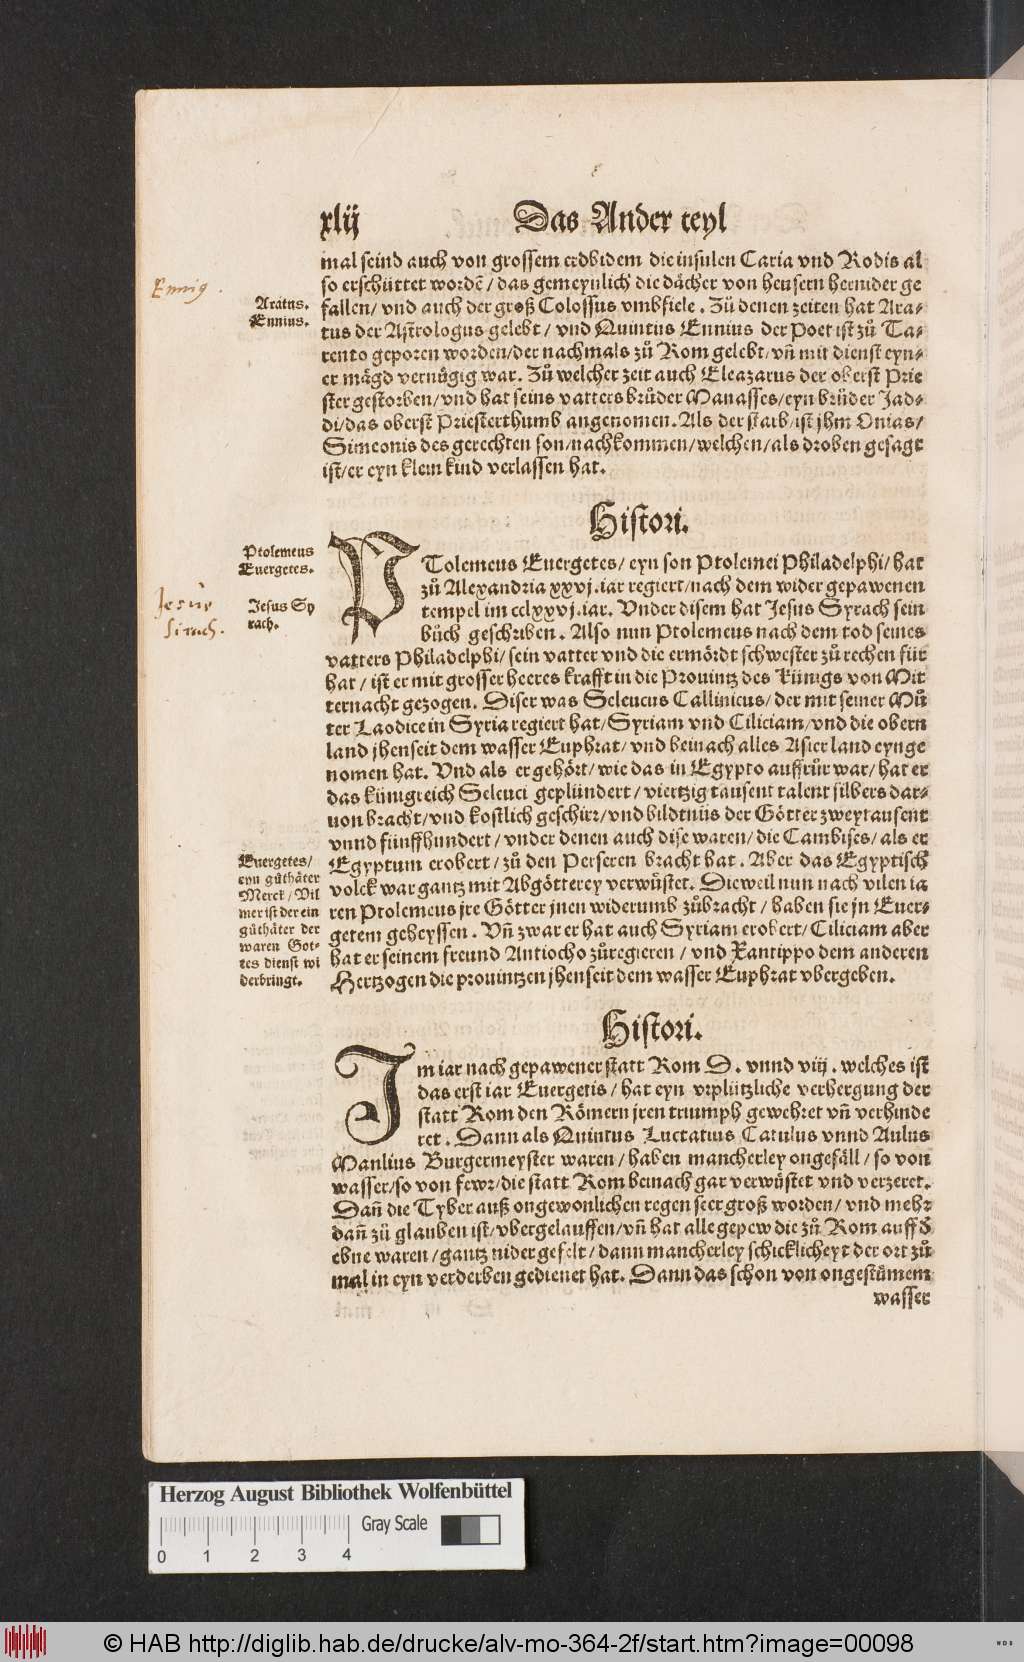 xlij Das Ander teyl
mal seind auch von grossem erdbidem die insulen Caria vnd Rodis al
so erschüttet wordẽ / das gemeynlich die dächer von heusern hernider ge
fallen / vnd auch der groß Colossus vmbfiele . Zů denen zeiten hat Ara⸗
tus der Astrologus gelebt / vnd Quintus Ennius der Poet ist zů Ta⸗
rento geporen worden / der nachmals zů Rom gelebt / vñ mit dienst eyn⸗
er mägd vernůgig war . Zů welcher zeit auch Eleazarus der oberst Prie
ster gestorben / vnd hat seins vatters brůder Manasses / eyn brůder Jad⸗
di / das oberst Priesterthumb angenomen . Als der starb / ist jhm Onias /
Simeonis des gerechten son / nachkommen / welchen / als droben gesagt
ist / er eyn klein kind verlassen hat .
Ennius .
Aratus .
Ennius .
Histori .
PTolemeus Euergetes / eyn son Ptolemei Philadelphi / hat
zů Alexandria xxvj . iar regiert / nach dem wider gepawenen
tempel im cclxxvj . iar . Vnder disem hat Jesus Syrach sein
bůch geschriben . Also nun Ptolemeus nach dem tod seines
vatters Philadelphi / sein vatter vnd die ermördt schwester zů rechen für
hat / ist er mit grosser heeres krafft in die Prouintz des Künigs von Mit
ternacht gezogen . Diser was Seleucus Callinicus / der mit seiner Mů
ter Laodice in Syria regiert hat / Syriam vnd Ciliciam / vnd die obern
land jhenseit dem wasser Euphrat / vnd beinach alles Asier land eynge
nomen hat . Vnd als er gehört / wie das in Egypto auffrůr war / hat er
das künigreich Seleuci geplündert / viertzig tausent talent silbers dar⸗
uon bracht / vnd kostlich geschirr / vnd bildtnüs der Götter zweytausent
vnnd fünffhundert / vnder denen auch dise waren / die Cambises / als er
Egyptum erobert / zů den Perseren bracht hat . Aber das Egyptisch
volck war gantz mit Abgötterey verwüstet . Dieweil nun nach vilen ia
ren Ptolemeus jre Götter jnen widerumb zůbracht / haben sie jn Euer⸗
getem geheyssen . Vñ zwar er hat auch Syriam erobert / Ciliciam aber
hat er seinem freund Antiocho zůregieren / vnd Xantippo dem anderen
Hertzogen die prouintzen jhenseit dem wasser Euphrat vbergeben .
Ptolemeus
Euergetes .
Jesus
Sirach .
Jesus Sy
rach .
Euergetes /
eyn gůthäter
Merck / Vil
mer ist der ein
gůthäter der
waren Got⸗
tes dienst wi
derbringt .
Histori .
Im iar nach gepawener statt Rom D . vnnd viij . welches ist
das erst iar Euergetis / hat eyn vrplützliche verhergung der
statt Rom den Römern jren triumph gewehret vñ verhinde
ret . Dann als Quintus Luctatius Catulus vnnd Aulus
Manlius Burgermeyster waren / haben mancherley ongefäll / so von
wasser / so von fewr / die statt Rom beinach gar verwüstet vnd verzeret .
Dañ die Tyber auß ongewonlichen regen seer groß worden / vnd mehr
dañ zů glauben ist / vbergelauffen / vñ hat alle gepew die zů Rom auff ď
ebne waren / gantz nider gefelt / dann mancherley schicklicheyt der ort zů
mal in eyn verderben gedienet hat . Dann das schon von ongestümem
wasser
Herzog August Bibliothek Wolfenbüttel
Gray Scale
0 1 2 3 4
© HAB http://diglib.hab.de/drucke/alv-mo-364-2f/start.htm?image=00098